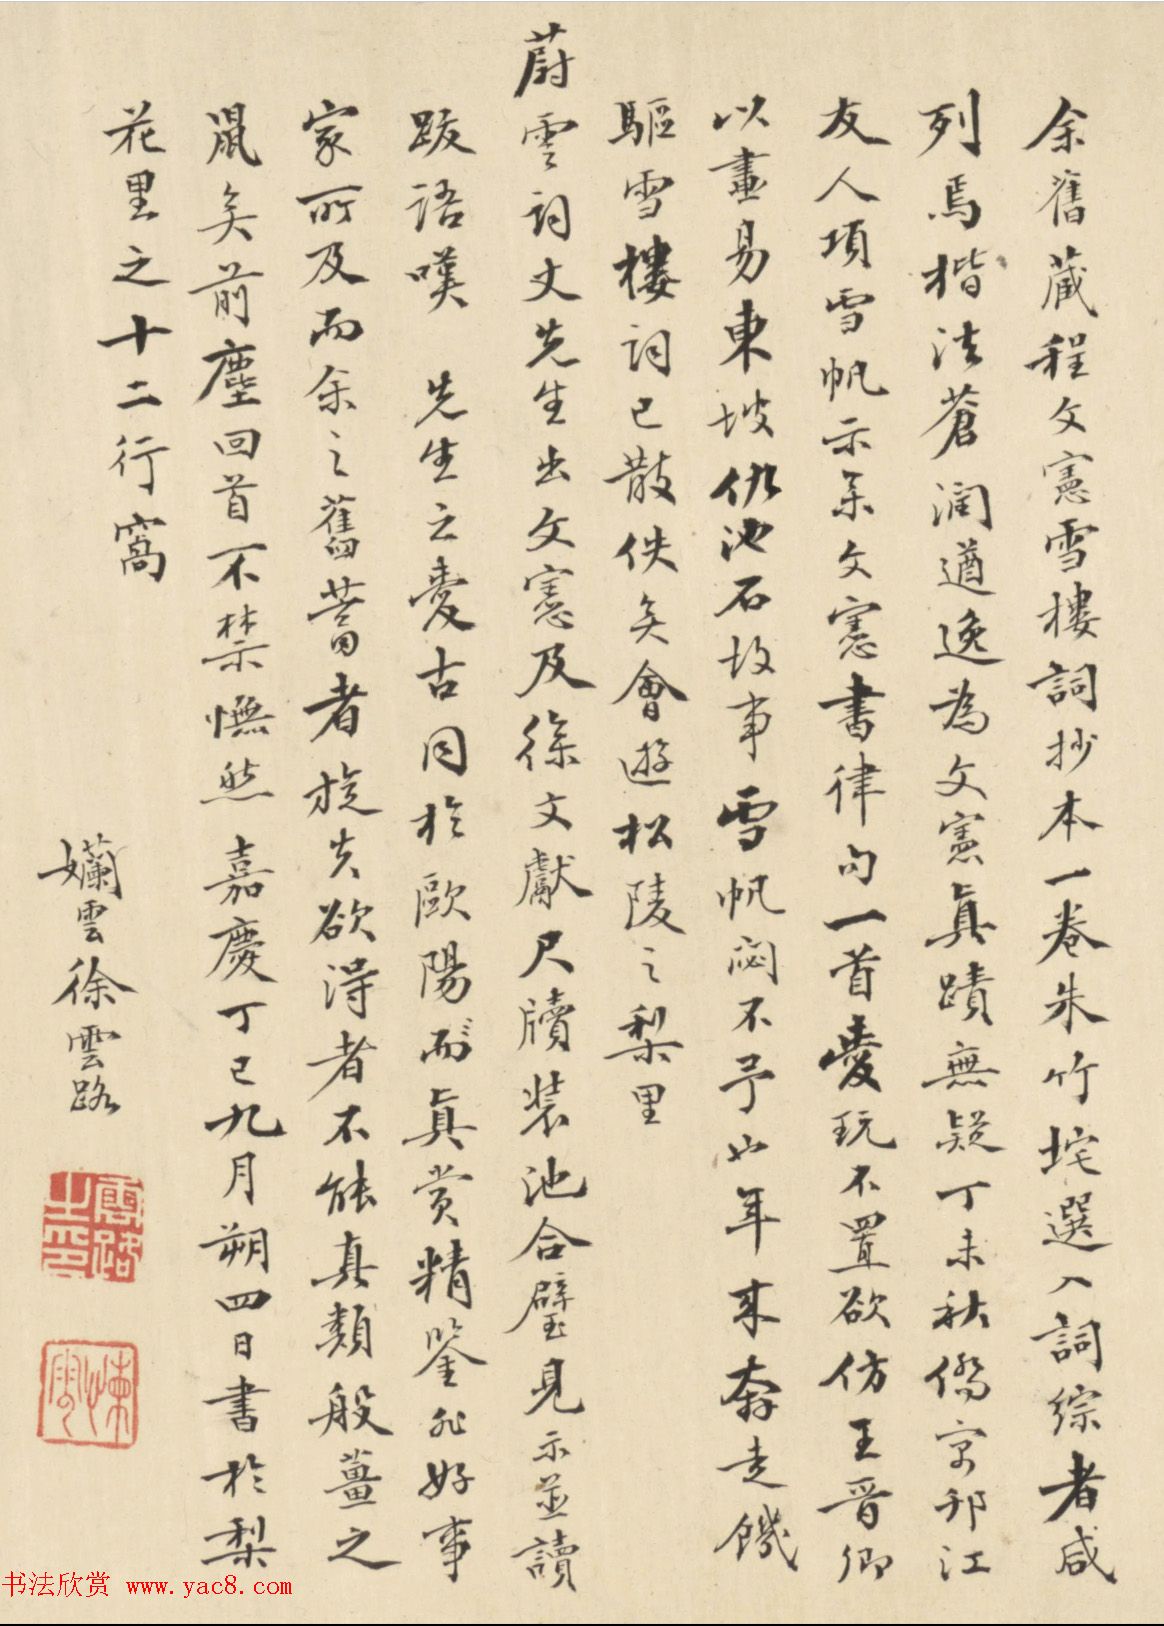 余舊藏程文憲雪樓詞抄本一卷朱竹垞選入詞綜者咸
列焉楷法蒼潤遒逸為文憲真蹟無疑丁未秋僑寓邗江
友人項雪帆示余文憲書律句一首愛玩不置欲仿王晉卿
以畫易東坡仇池石故事雪帆閟不予也年來奔走饑
驅雪樓詞已散佚矣會遊松陵之梨里
蔚雲詞丈先生出文憲及徐文獻尺牘裝池合璧見示並讀
跋語嘆 先生之愛古同於歐陽而真賞精鑒非好事
家所及而余之舊蓄者旋失欲得者不能真類般薑之
鼠矣前塵回首不禁憮然嘉慶丁巳九月朔四日書於梨
花里之十二行窩
嬾雲徐雲路
雲路之印
書法欣賞 www.yac8.com